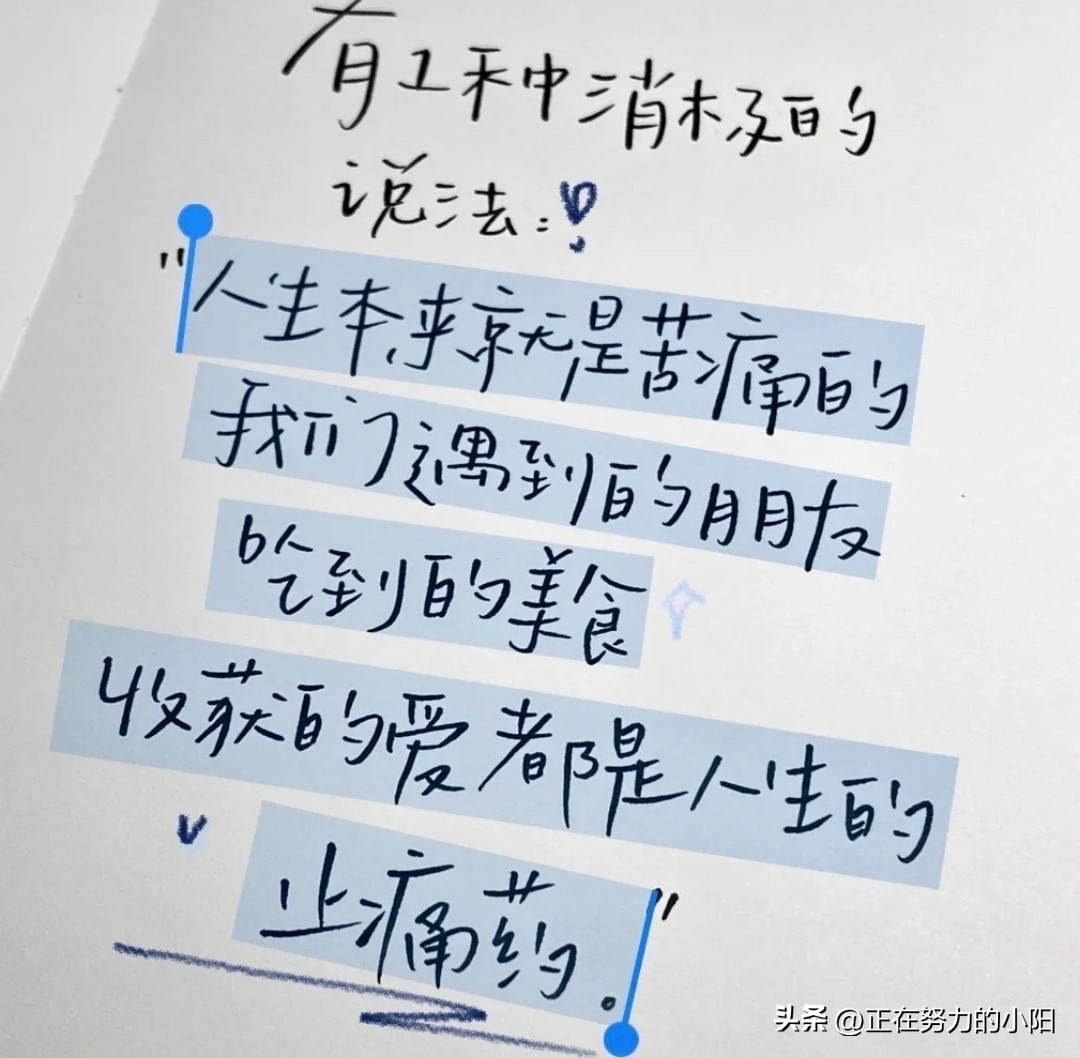 有1种消极的
说法:
"人生本来就是苦痛的
我们遇到的朋友
吃到的美食
收获的爱都是人生的
止痛药."
头条 @正在努力的小阳